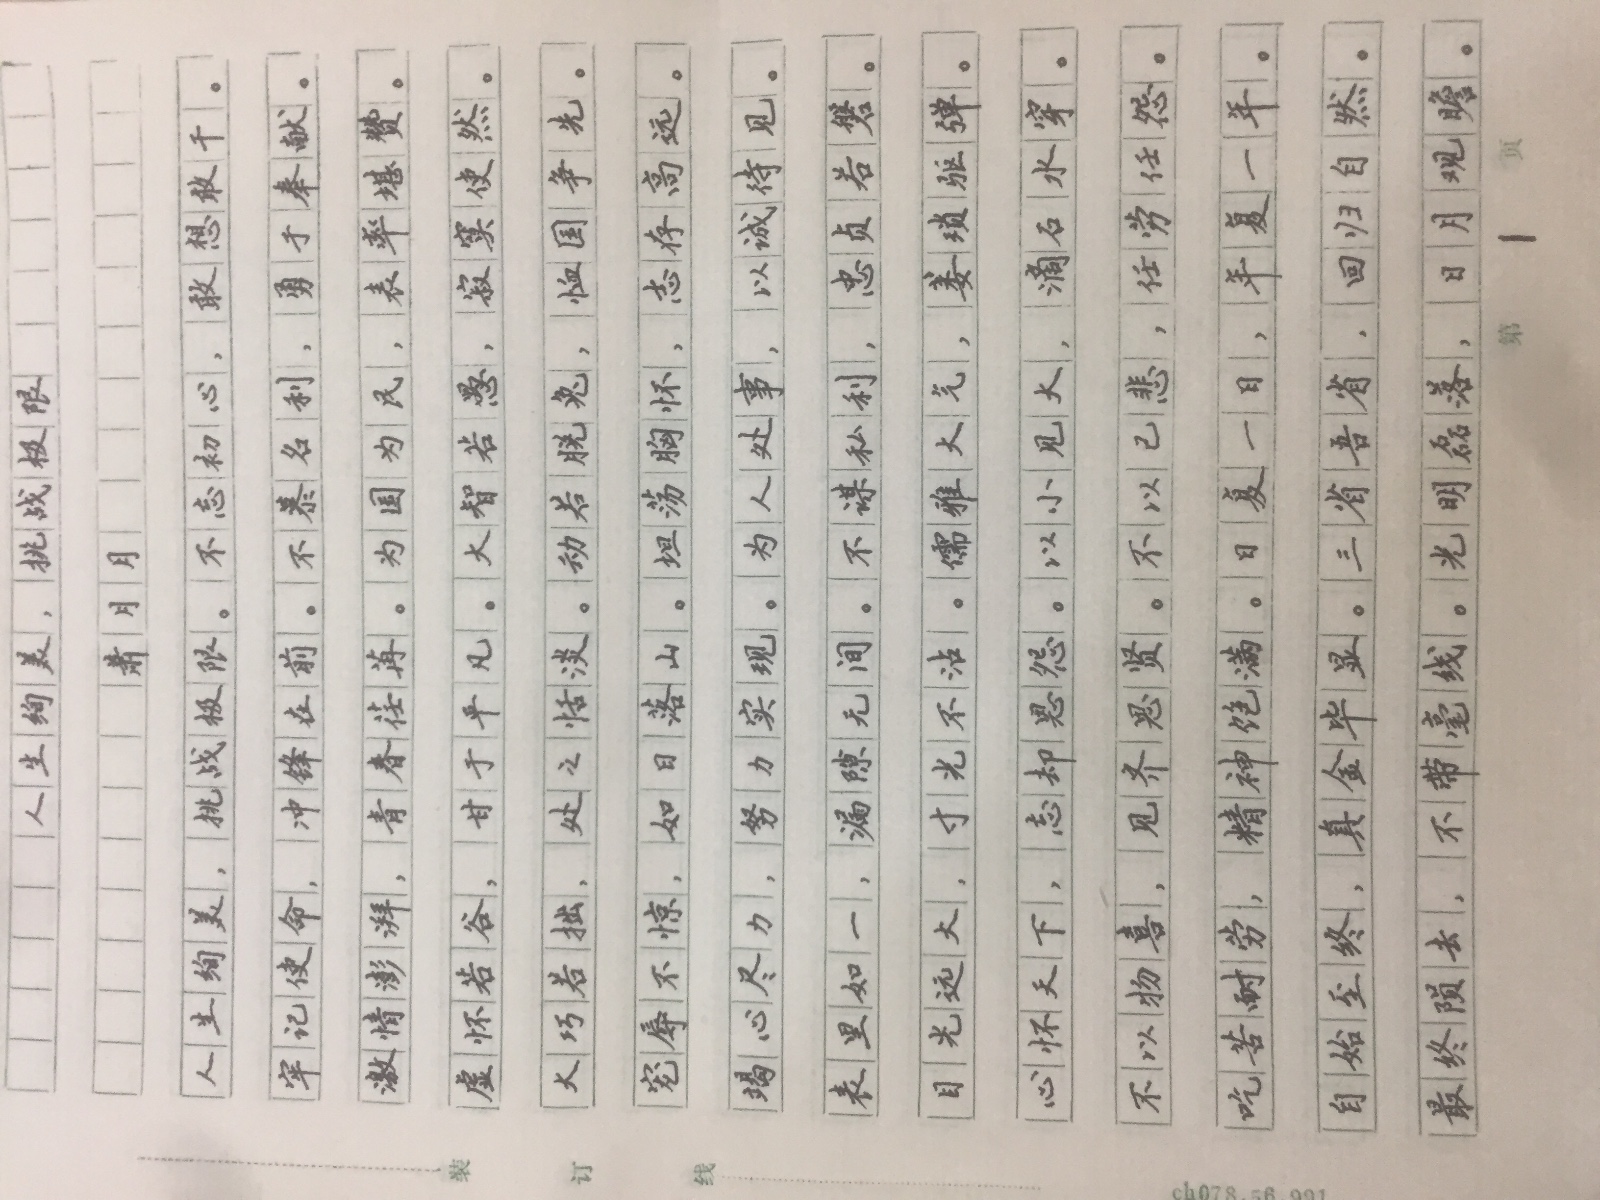 人生绚美，挑战极限
萧月月
人生绚美，挑战极限。不忘初心，敢想敢干。
牢记使命，冲锋在前。不慕名利，勇于奉献。
激情澎湃，青春荏苒。为国为民，表率堪赞。
虚怀若谷，甘于平凡。大智若愚，寂寞使然。
大巧若拙，处之恬淡。动若脱兔，恤国争先。
宠辱不惊，如日落山。坦荡胸怀，志存高远。
竭心尽力，努力实现。为人处事，以诚待见。
表里如一，漏隙无间。不谋私利，忠贞若磐。
目光远大，寸光不沾。儒雅大气，萎琐驱弹。
心怀天下，忘却恩怨。以小见大，滴石水穿。
不以物喜，见齐思贤。不以己悲，任劳任怨。
吃苦耐劳，精神饱满。日复一日，年复一年。
自始至终，真金毕显。三省吾省，回归自然。
最终陨去，不带毫线。光明磊落，日月观瞻。
第 1 页
装 订 线
ch078.56.991